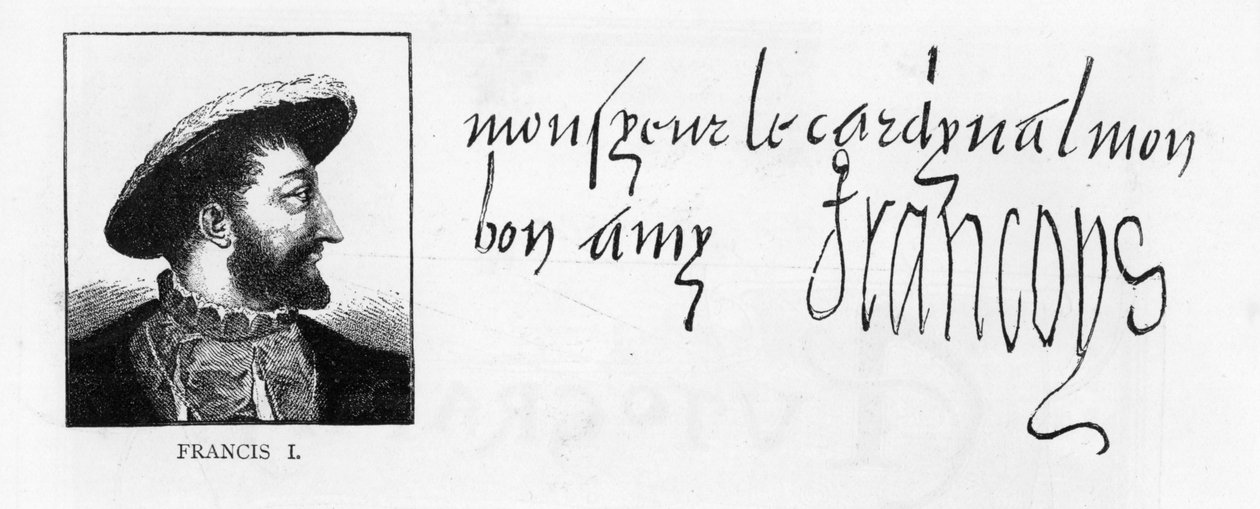 monsyeur le cardynal mon
bon amy
françoys
FRANCIS I.